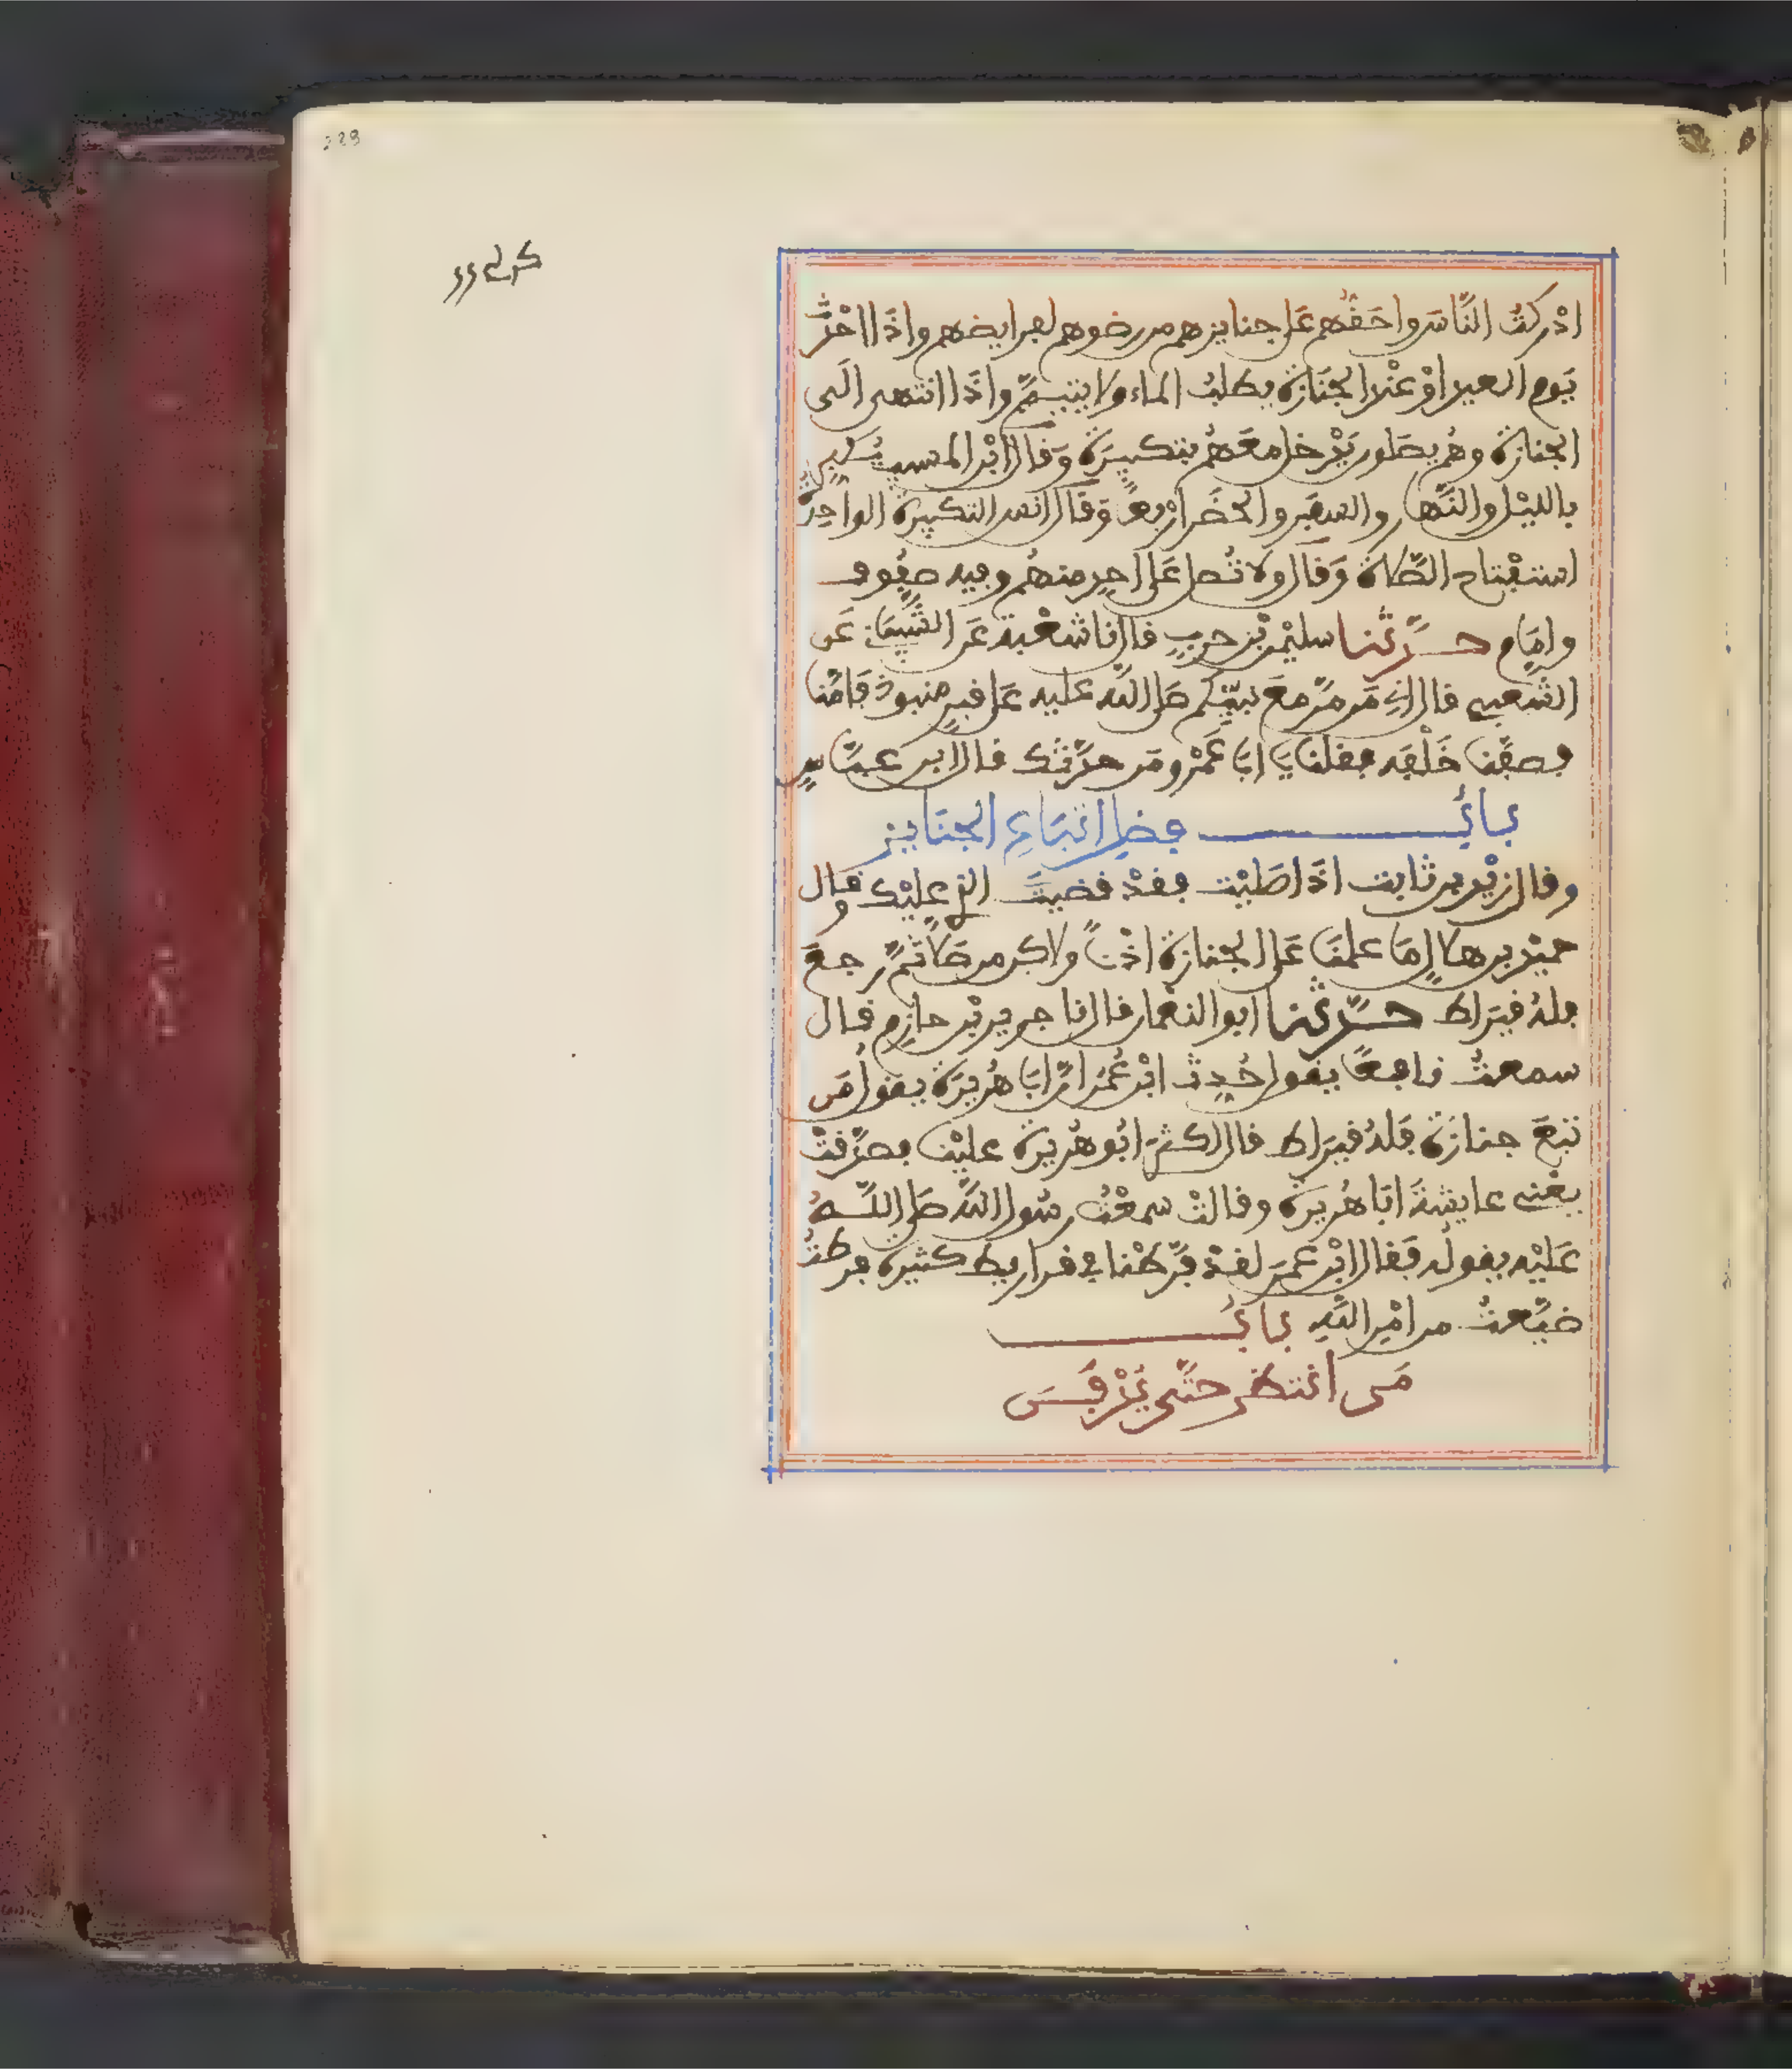 ادْركتُ النَّاسَ واحَقُّهم عَلى جنايزهم من رضوهم لفرايضهم واذَا احْدَثَ
يَوم العيد اوْ عنْد الجَنَازة يطلبُ الماء ولا يتيمَّم واذَا انتهى الَى
الجنازة وهُم يصَلون يَدْخل معَهُم بتكبيرَة وَقال ابْن المسيب يُكبر
بالليْل والنَّهار والسفَر والحَضَر ارْبعاً وَقال انس التكبيرة الواحِدَة
استفْتاح الصَّلاة وَقال ولا تُصل عَلى احدٍ منهُم وفيه صفُوف
وامَام حدَّثنا سليمٰن بْن حربٍ قال نا شعْبة عَن الشَّيبَاني عَن
الشَّعبي قال اخبرني مَن مرَّ مَعَ نبيّكم صَلى اللَّه عليه عَلى قبرٍ منبوذ فَامَّنا
فصفَّنا خَلْفه فقلنا يَا ابَا عَمْرو مَن حدَّثك قال ابن عبَّاسٍ
بابُ فضل اتبَاعِ الجنَايز
وقال زيْد بن ثابت اذَا صَليْت فقدْ قضيتَ الذي عليْك وقال
حميْد بن هلالٍ مَا علمنَا عَلى الجنازة اذْناً ولاكن من صَلَّى ثمَّ رجعَ
فلهُ قيرَاط حدَّثنا ابو النعْمان قال نا جرير بْن حازمٍ قال
سمعتُ نافعاً يقول حُدِث ابْن عُمَر انَّ ابَا هُريرَة يقولُ مَن
تبعَ جنازَة فَلهُ قيرَاط قال اكثرَ ابُو هُريرَة عليْنا فصدَّقتْ
يعْني عايشةَ ابَا هُريرَة وقالتْ سمعْتُ رسُول اللَّه صَلى اللَّه
عَليْه يقوله فَقال ابْن عمَر لقدْ فرَّطْنا في قراريط كثيرة فرطتُ
ضيَّعتُ من امْر اللَّه بابُ
مَن انتظر حتَّى يُدْفَن